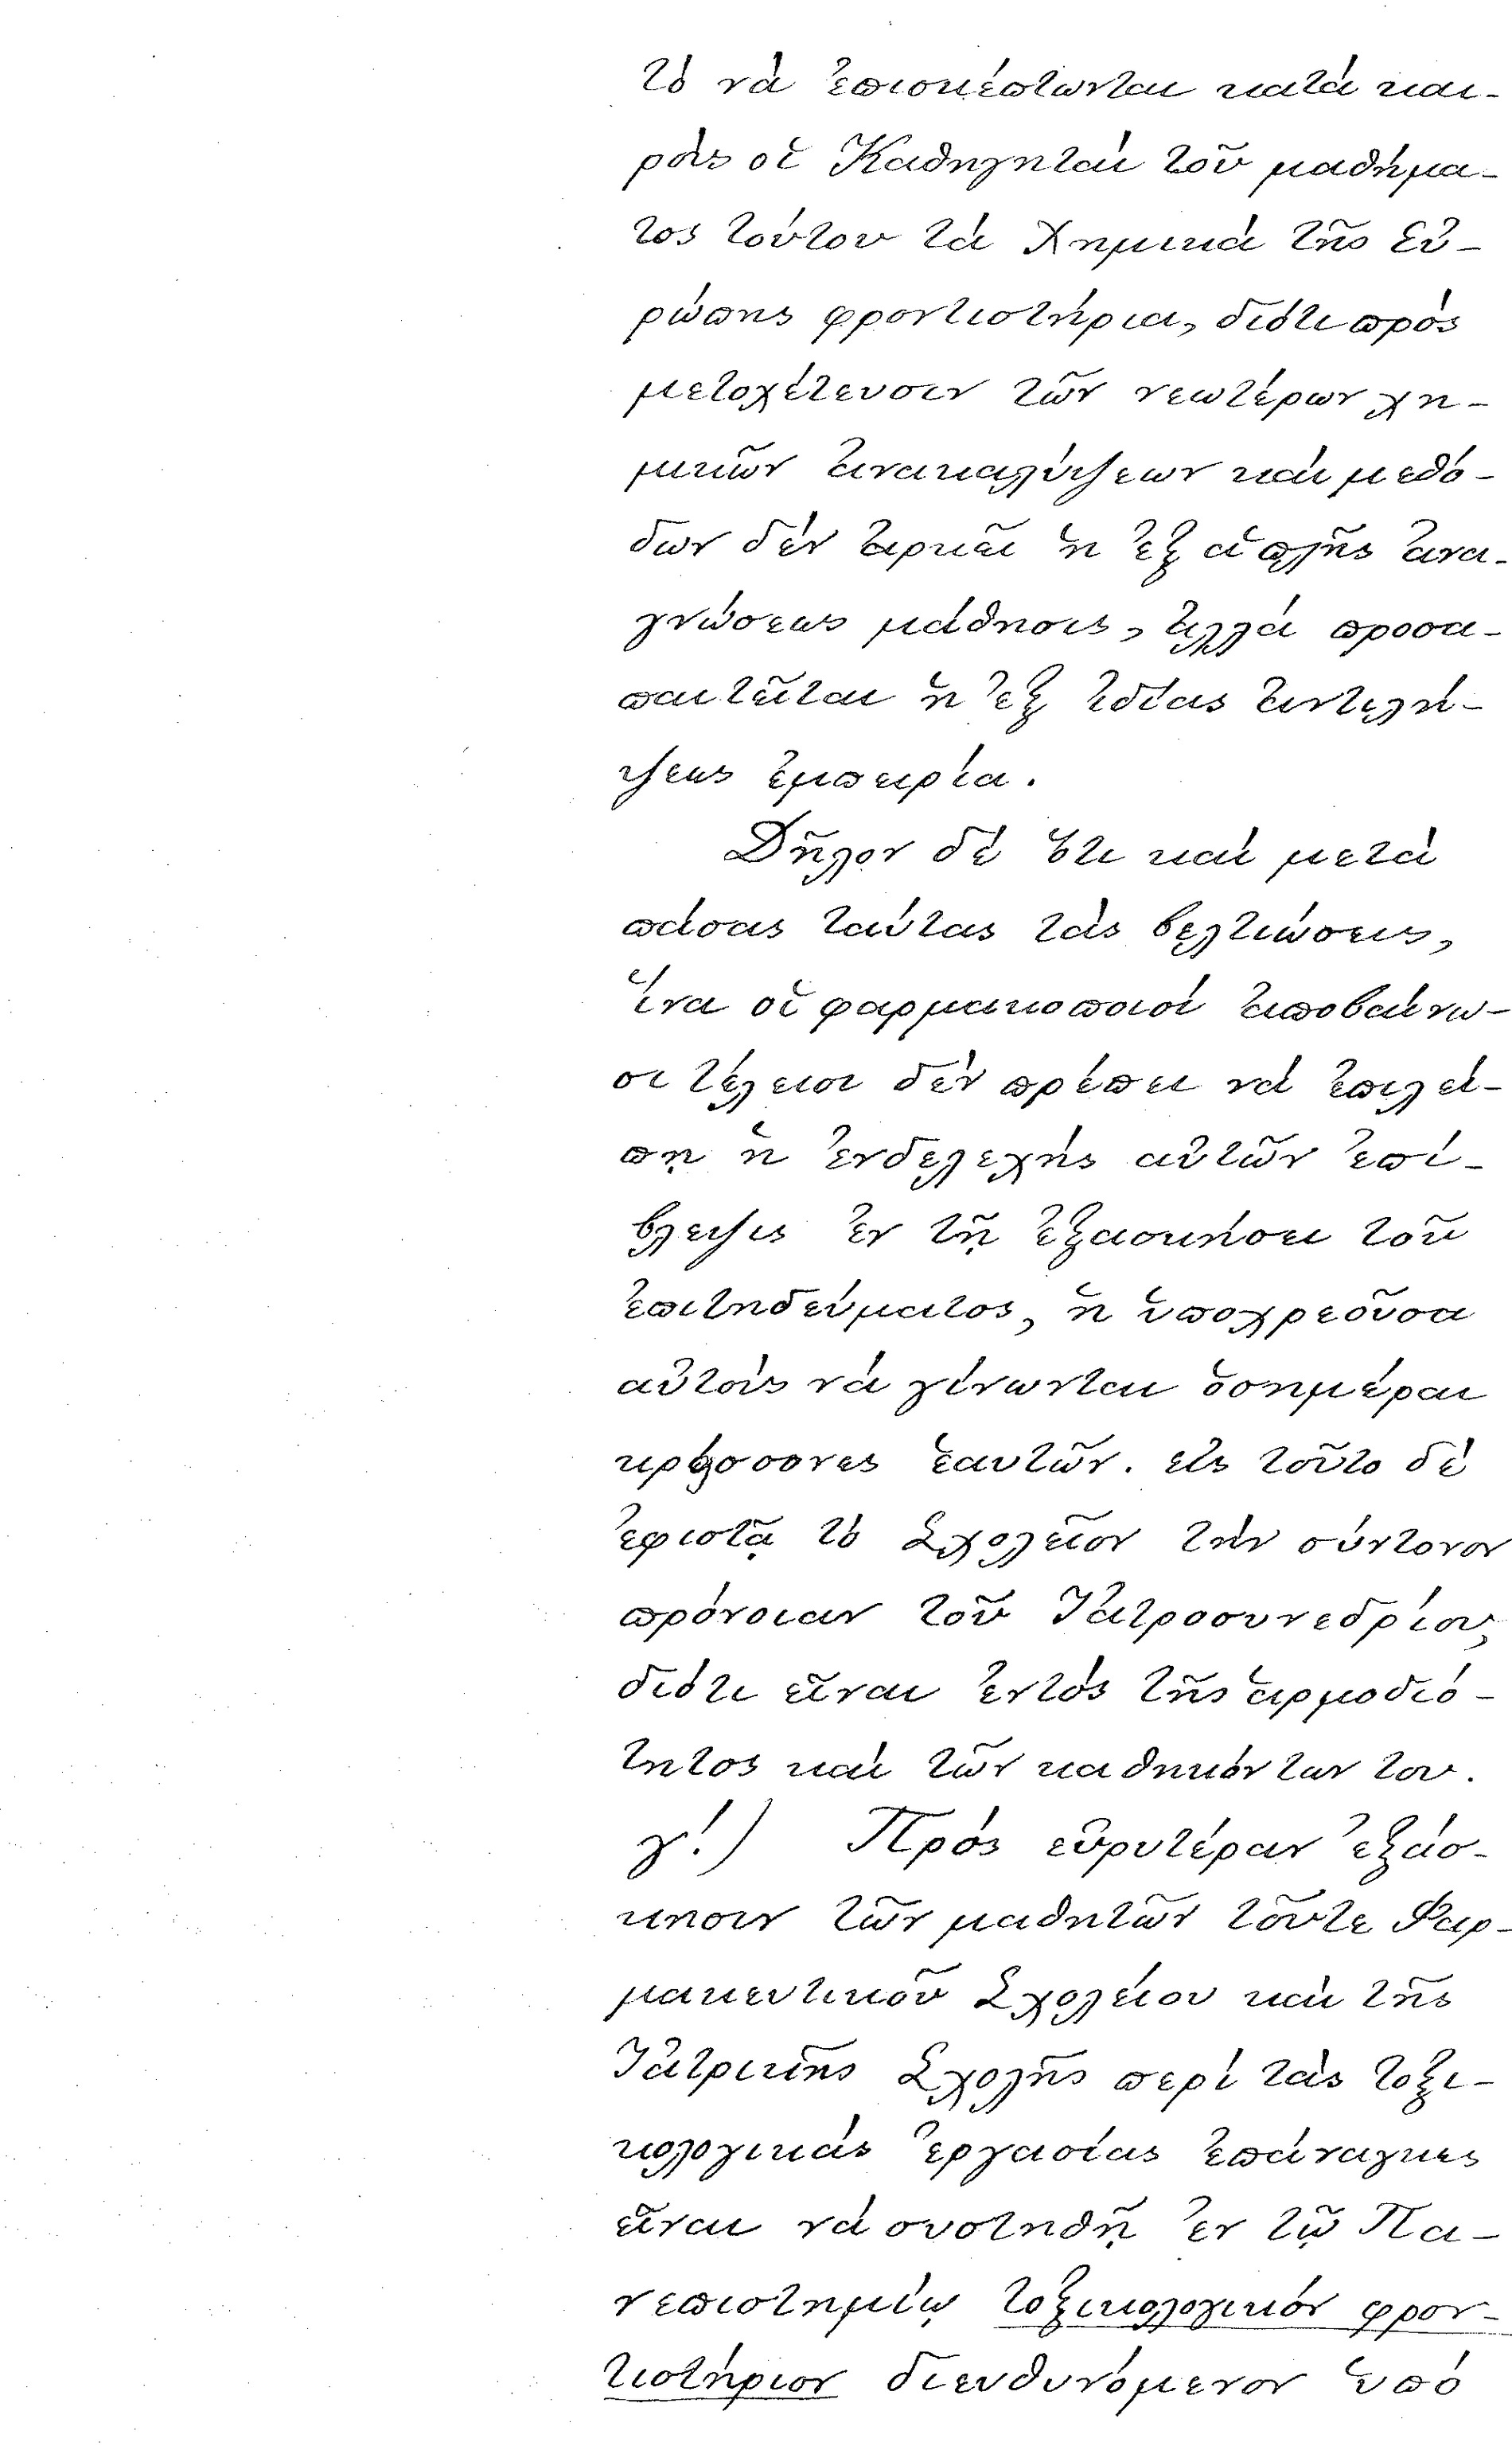 τὸ νὰ ἐπισκέπτωνται κατὰ και-
ροὺς οἱ Καθηγηταὶ τοῦ μαθήμα-
τος τούτου τὰ Χημικὰ τῆς Εὐ-
ρώπης φροντιστήρια, διότι πρὸς
μετοχέτευσιν τῶν νεωτέρων χη-
μικῶν ἀνακαλύψεων καὶ μεθό-
δων δὲν ἀρκεῖ ἡ ἐξ ἁπλῆς ἀνα-
γνώσεως μάθησις, ἀλλὰ προσα-
παιτεῖται ἡ ἐξ ἰδίας ἀντιλή-
ψεως ἐμπειρία.
Δῆλον δὲ ὅτι καὶ μετὰ
πάσας ταύτας τὰς βελτιώσεις,
ἵνα οἱ φαρμακοποιοὶ ἀποβαίνω-
σι τέλειοι δὲν πρέπει νὰ ἐπιλεί-
πῃ ἡ ἐνδελεχὴς αὐτῶν ἐπί-
βλεψις ἐν τῇ ἐξασκήσει τοῦ
ἐπιτηδεύματος, ἡ ὑποχρεοῦσα
αὐτοὺς νὰ γίνωνται ὁσημέραι
κρείσσονες ἑαυτῶν. εἰς τοῦτο δὲ
ἐφιστᾷ τὸ Σχολεῖον τὴν σύντονον
πρόνοιαν τοῦ Ἰατροσυνεδρίου,
διότι εἶναι ἐντὸς τῆς ἁρμοδιό-
τητος καὶ τῶν καθηκόντων του.
γʹ.) Πρὸς εὐρυτέραν ἐξάσ-
κησιν τῶν μαθητῶν τοῦτε Φαρ-
μακευτικοῦ Σχολείου καὶ τῆς
Ἰατρικῆς Σχολῆς περὶ τὰς τοξι-
κολογικὰς ἐργασίας ἐπάναγκες
εἶναι νὰ συστηθῇ ἐν τῷ Πα-
νεπιστημίῳ τοξικολογικὸν φρον-
τιστήριον διευθυνόμενον ὑπὸ